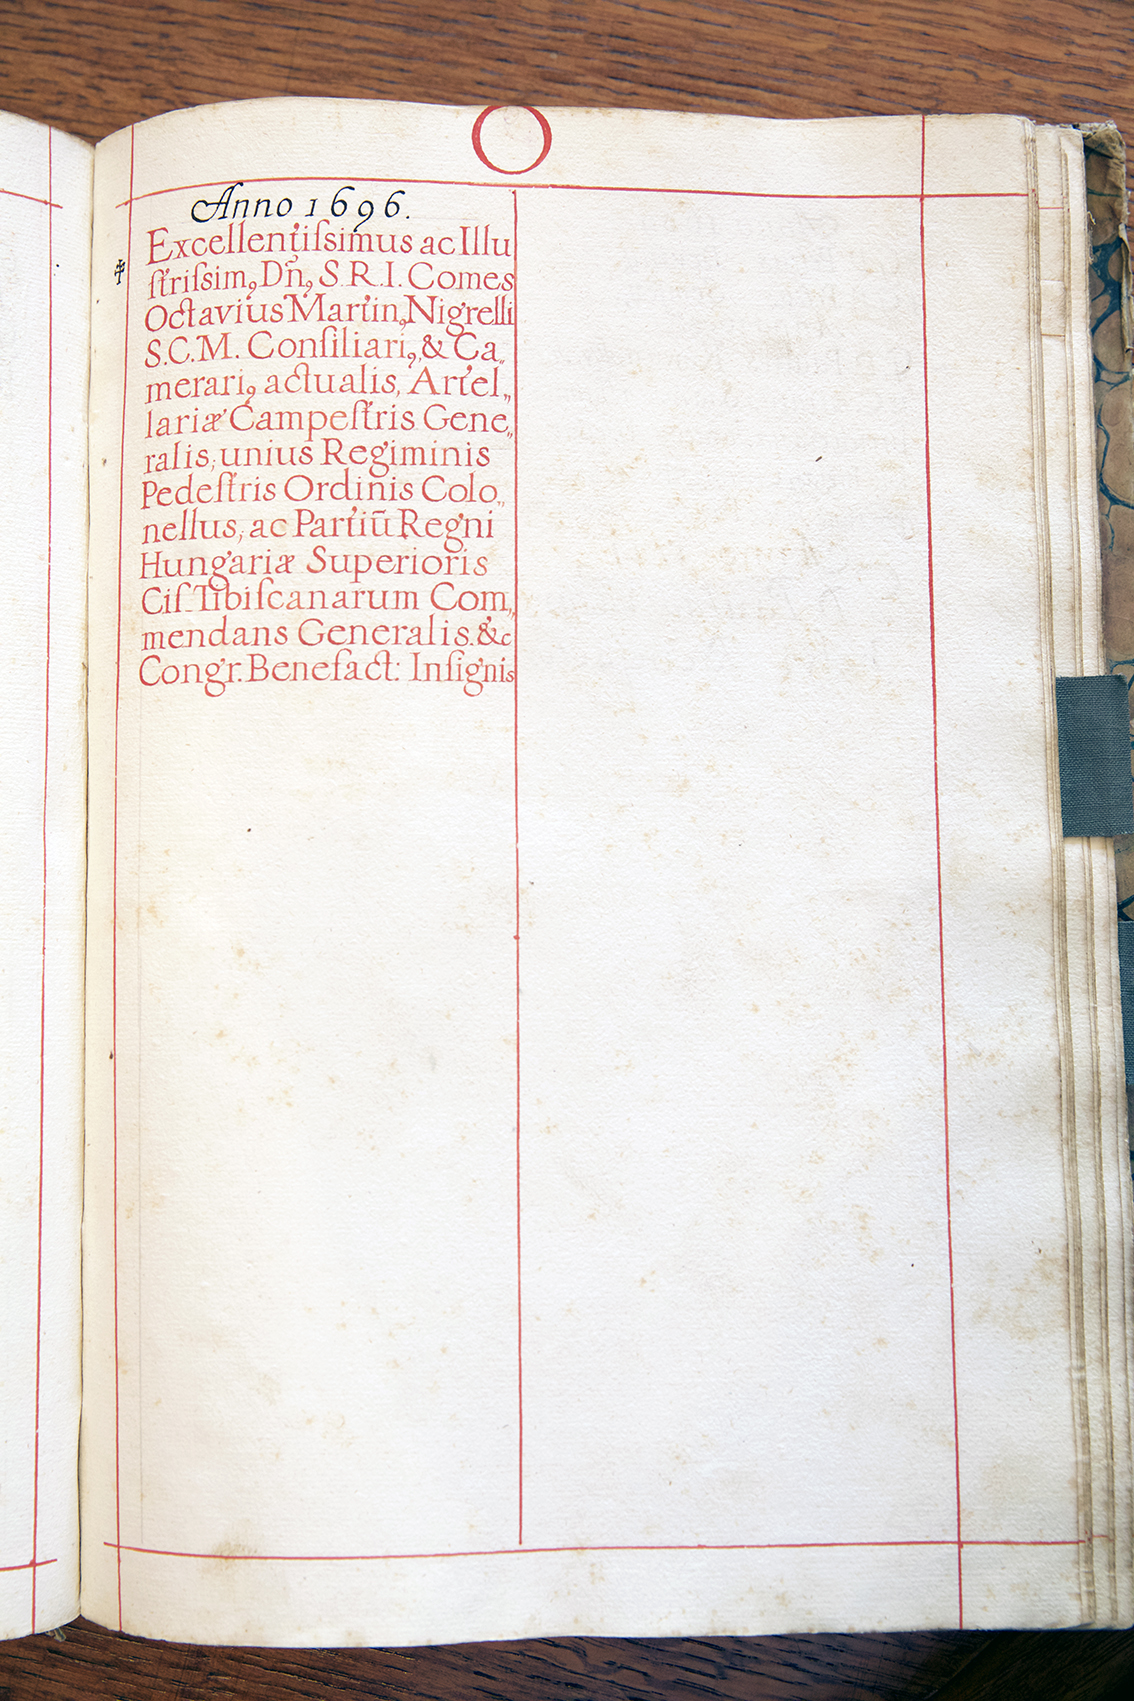 O
Anno 1696.
Excellentiſsimus ac Illu
ſtriſsimꝰ Dn̄ꝰ S.R.I. Comes
Octavius Martinꝰ Nigrelli
S.C.M. Conſiliariꝰ, & Ca„
merariꝰ actualis, Artel„
lariæ Campeſtris Gene„
ralis, unius Regiminis
Pedeſtris Ordinis Colo„
nellus, ac Partiū Regni
Hungariæ Superioris
Ciſ-Tibiſcanarum Com„
mendans Generalis. &c
Congr. Benefact: Inſignis